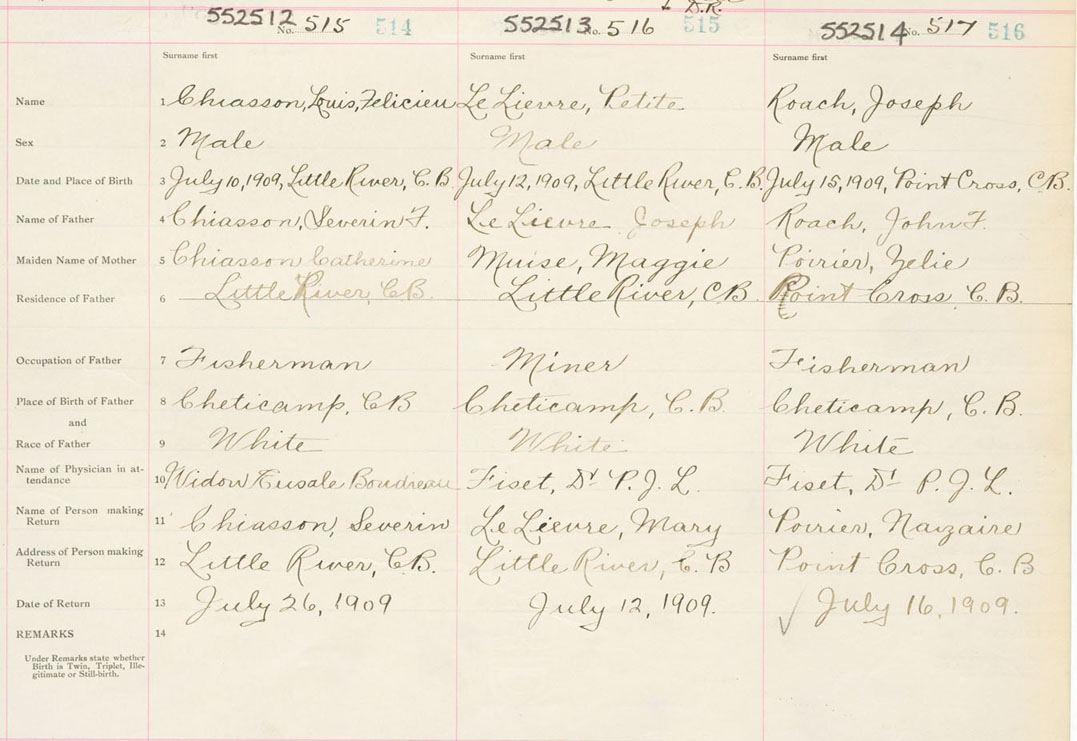 D.R.
552512 No. 515 514 552513 No. 516 515 552514 No. 517 516
Surname first Surname first Surname first
Name 1 Chiasson, Louis, Felicien Le Lievre, Petite Roach, Joseph
Sex 2 Male Male Male
Date and Place of Birth 3 July 10, 1909, Little River, C.B. July 12, 1909, Little River, C.B. July 15, 1909, Point Cross, C.B.
Name of Father 4 Chiasson, Severin F. Le Lievre Joseph Roach, John F.
Maiden Name of Mother 5 Chiasson Catherine Muise, Maggie Poirier, Zelie
Residence of Father 6 Little River, C.B. Little River, C.B. Point Cross, C.B.
Occupation of Father 7 Fisherman Miner Fisherman
Place of Birth of Father 8 Cheticamp, CB Cheticamp, C.B. Cheticamp, C.B.
and
Race of Father 9 White White White
Name of Physician in at-
tendance 10 Widow Boudreau Fiset, Dr P.J.L. Fiset, Dr P.J.L.
Name of Person making
Return 11 Chiasson, Severin Le Lievre, Mary Poirier, Naizaire
Address of Person making
Return 12 Little River, C.B. Little River, C.B Point Cross, C.B
Date of Return 13 July 26, 1909 July 12, 1909. July 16, 1909.
REMARKS 14
Under Remarks state whether
Birth is Twin, Triplet, Ille-
gitimate or Still-birth.